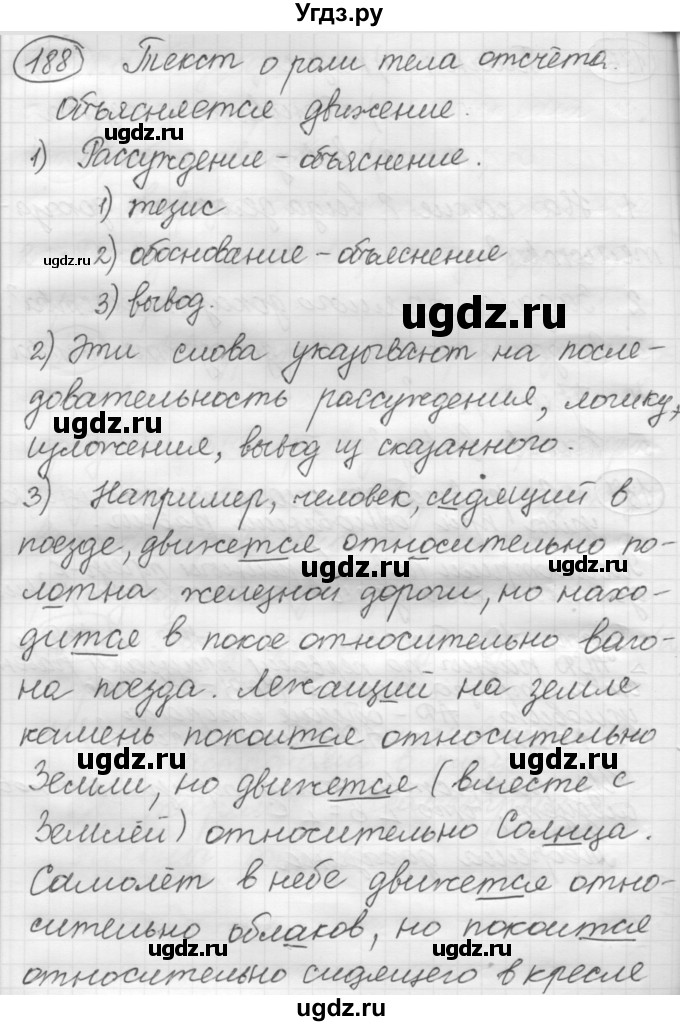 Угдз.ру
188 Текст о роли тела отсчёта.
Объясняется движение.
ugdz.ru
1) Рассуждение - объяснение.
1) тезис
ugdz.ru
2) обоснование - объяснение
3) вывод.
ugdz.ru
2) Эти слова указывают на после-
довательность рассуждения, логику,
ugdz.ru
изложения, вывод из сказанного.
3) Например, человек, сидящий в
поезде, движется относительно по-
ugdz.ru ugdz.ru
лотна железной дороги, но нахо-
дится в покое относительно ваго-
на поезда. Лежащий на земле
камень покоится относительно
ugdz.ru
Земли, но движется (вместе с
ugdz.ru
Землёй) относительно Солнца.
ugdz.ru
Самолёт в небе движется отно-
сительно облаков, но покоится
ugdz.ru
относительно сидящего в кресле
ugdz.ru